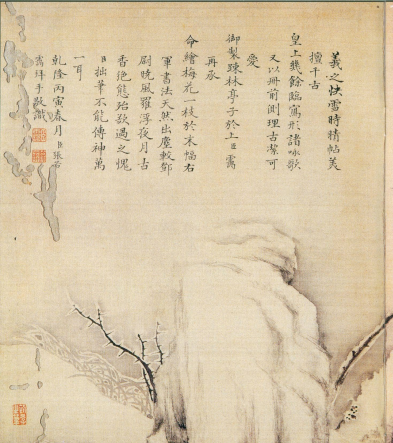 羲之快雪時晴帖美
擅千古
皇上幾餘臨寫形諸咏歌
又以冊前側理古潔可
愛
御製疎林亭子於上臣靄
再承
命繪梅花一枝於末幅右
軍書法天然出塵較鄧
尉曉風羅浮夜月古
香絕態殆欲過之愧
臣拙筆不能傳神萬
一耳
乾隆丙寅春月臣張若
靄拜手敬識